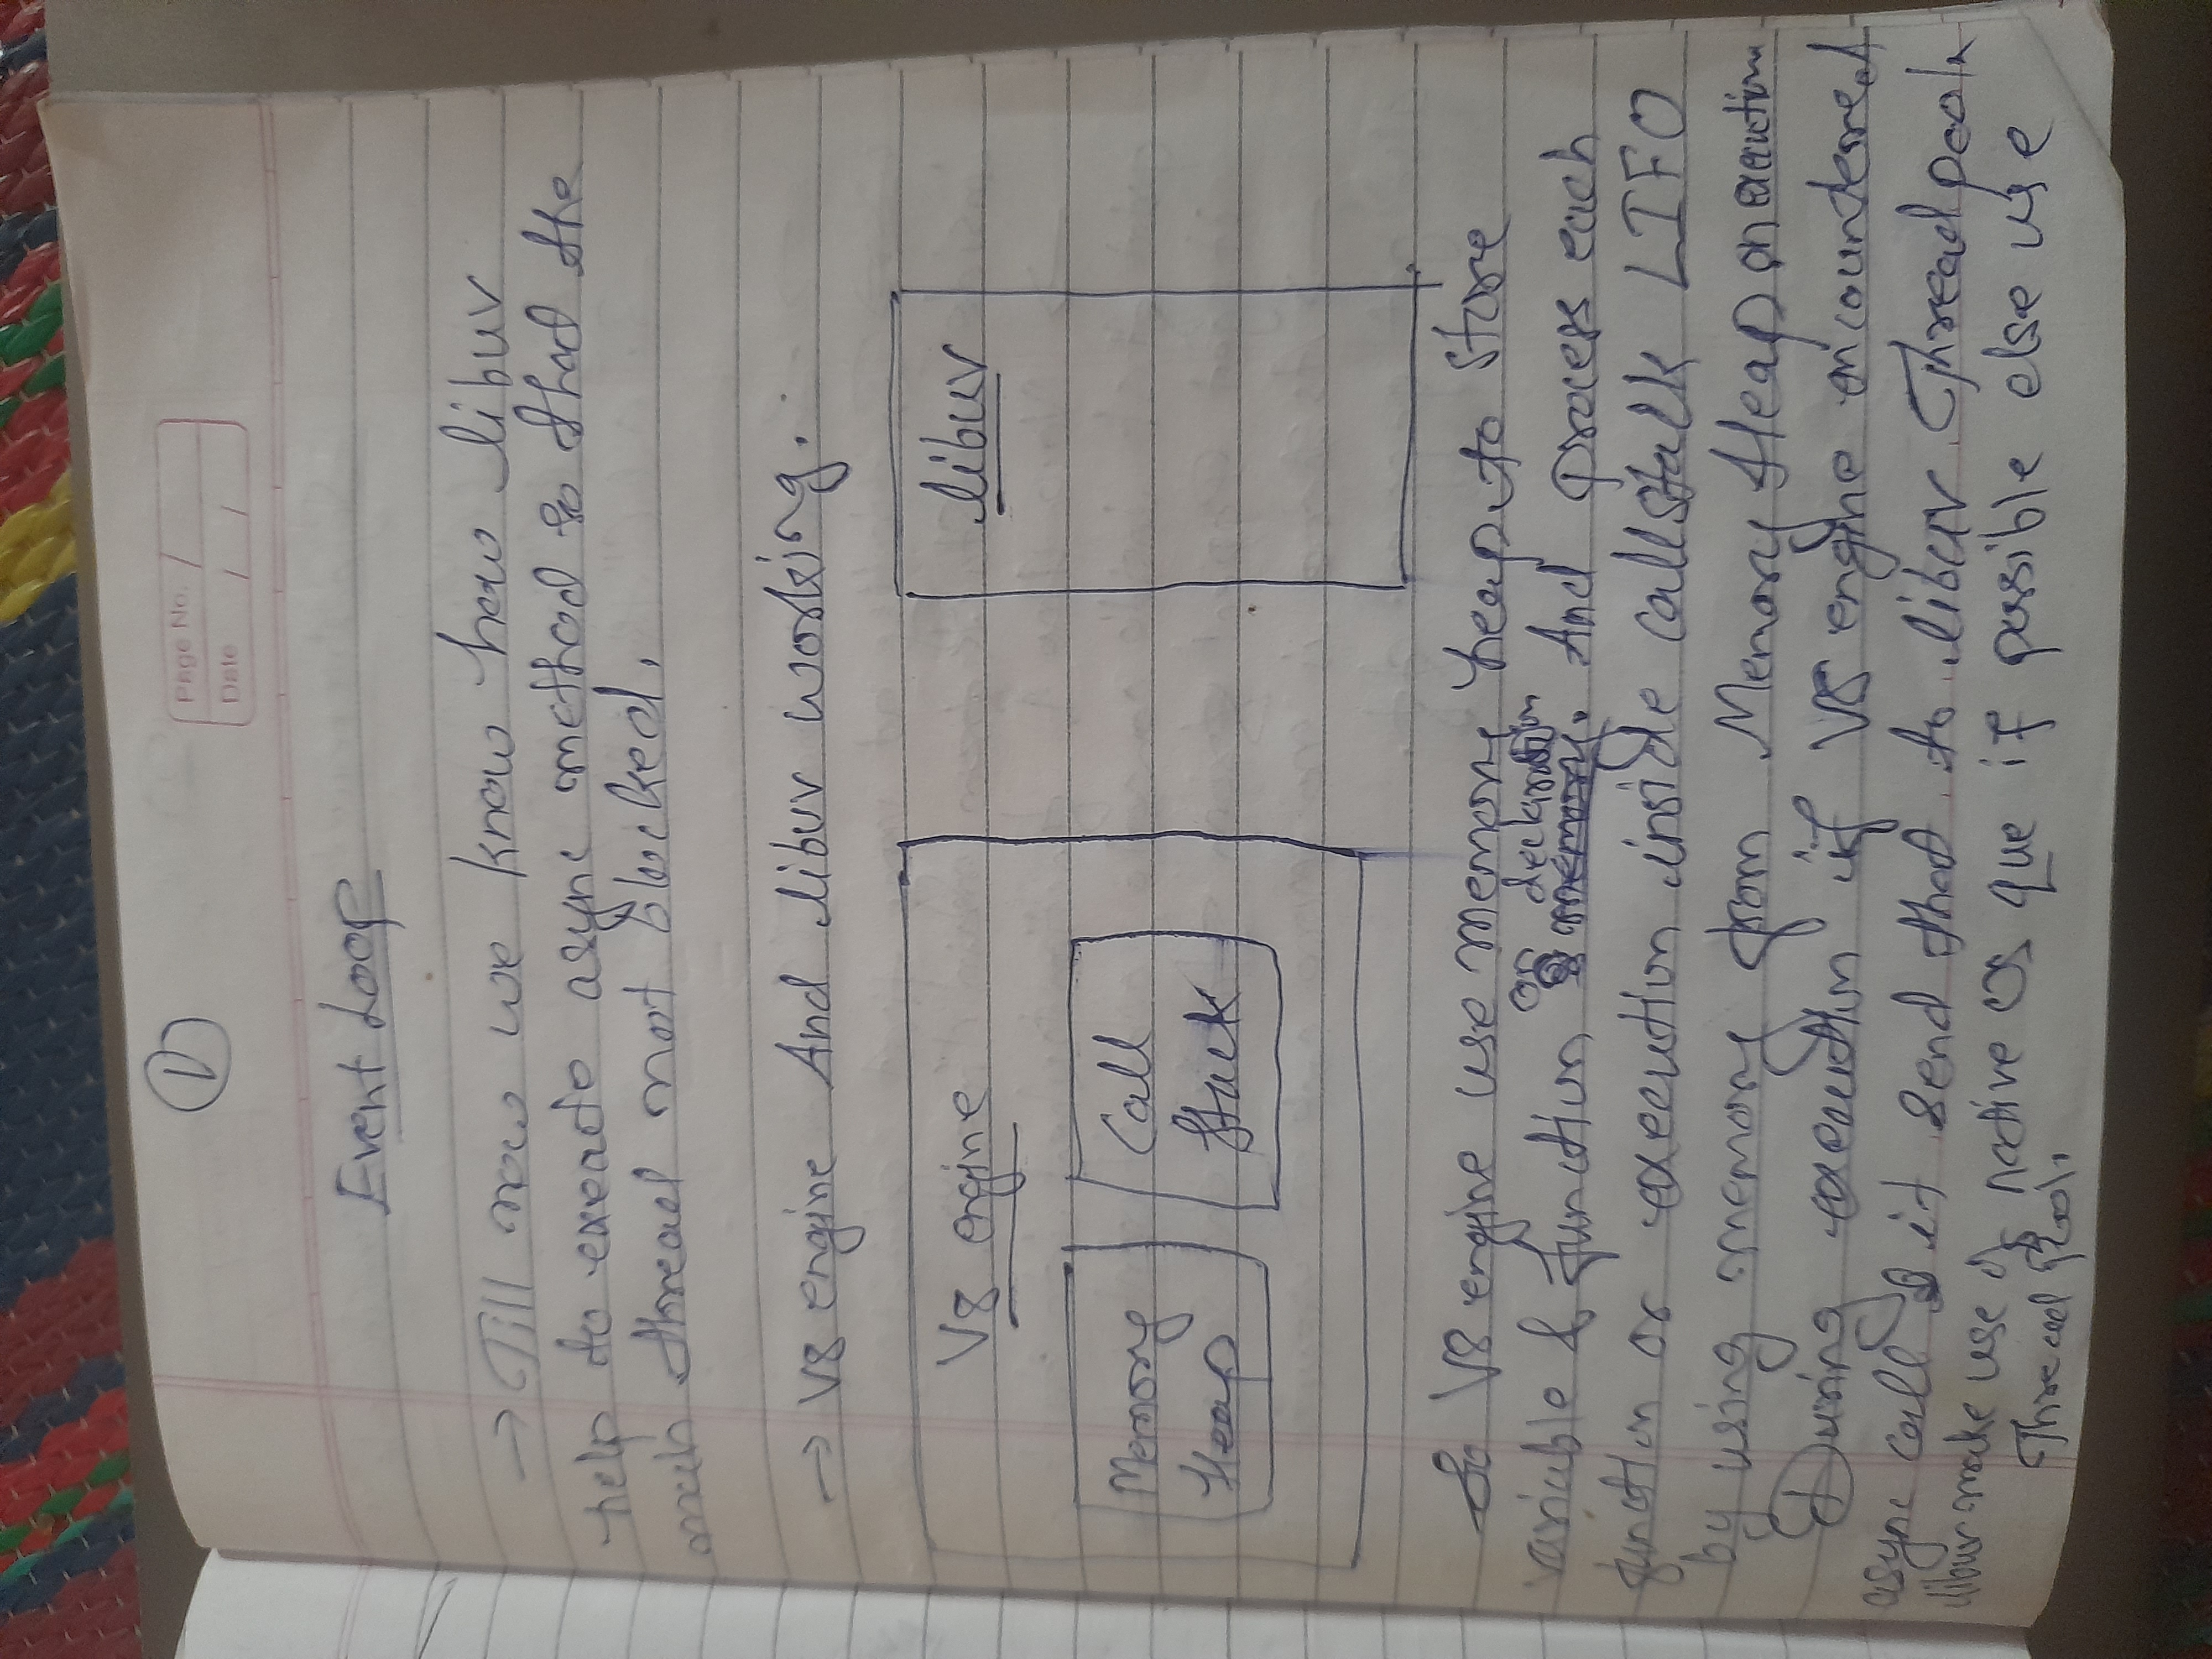 1
Page No.
Date
Event Loop
→ Till now we know how libuv
help to execute async method so that the
main thread not blocked.
→ V8 engine And libuv working.
V8 engine
libuv
Memory
Heap
Call
Stack
So V8 engine use memory heap to store
or declaration
variable & function memory. And process each
function or execution inside callstalk LIFO
by using memory from Memory Heap on execution
During execution if V8 engine encounterred
async call it send that to libuv Thread pool.
libuv make use of native OS que if possible else use
Thread Pool.